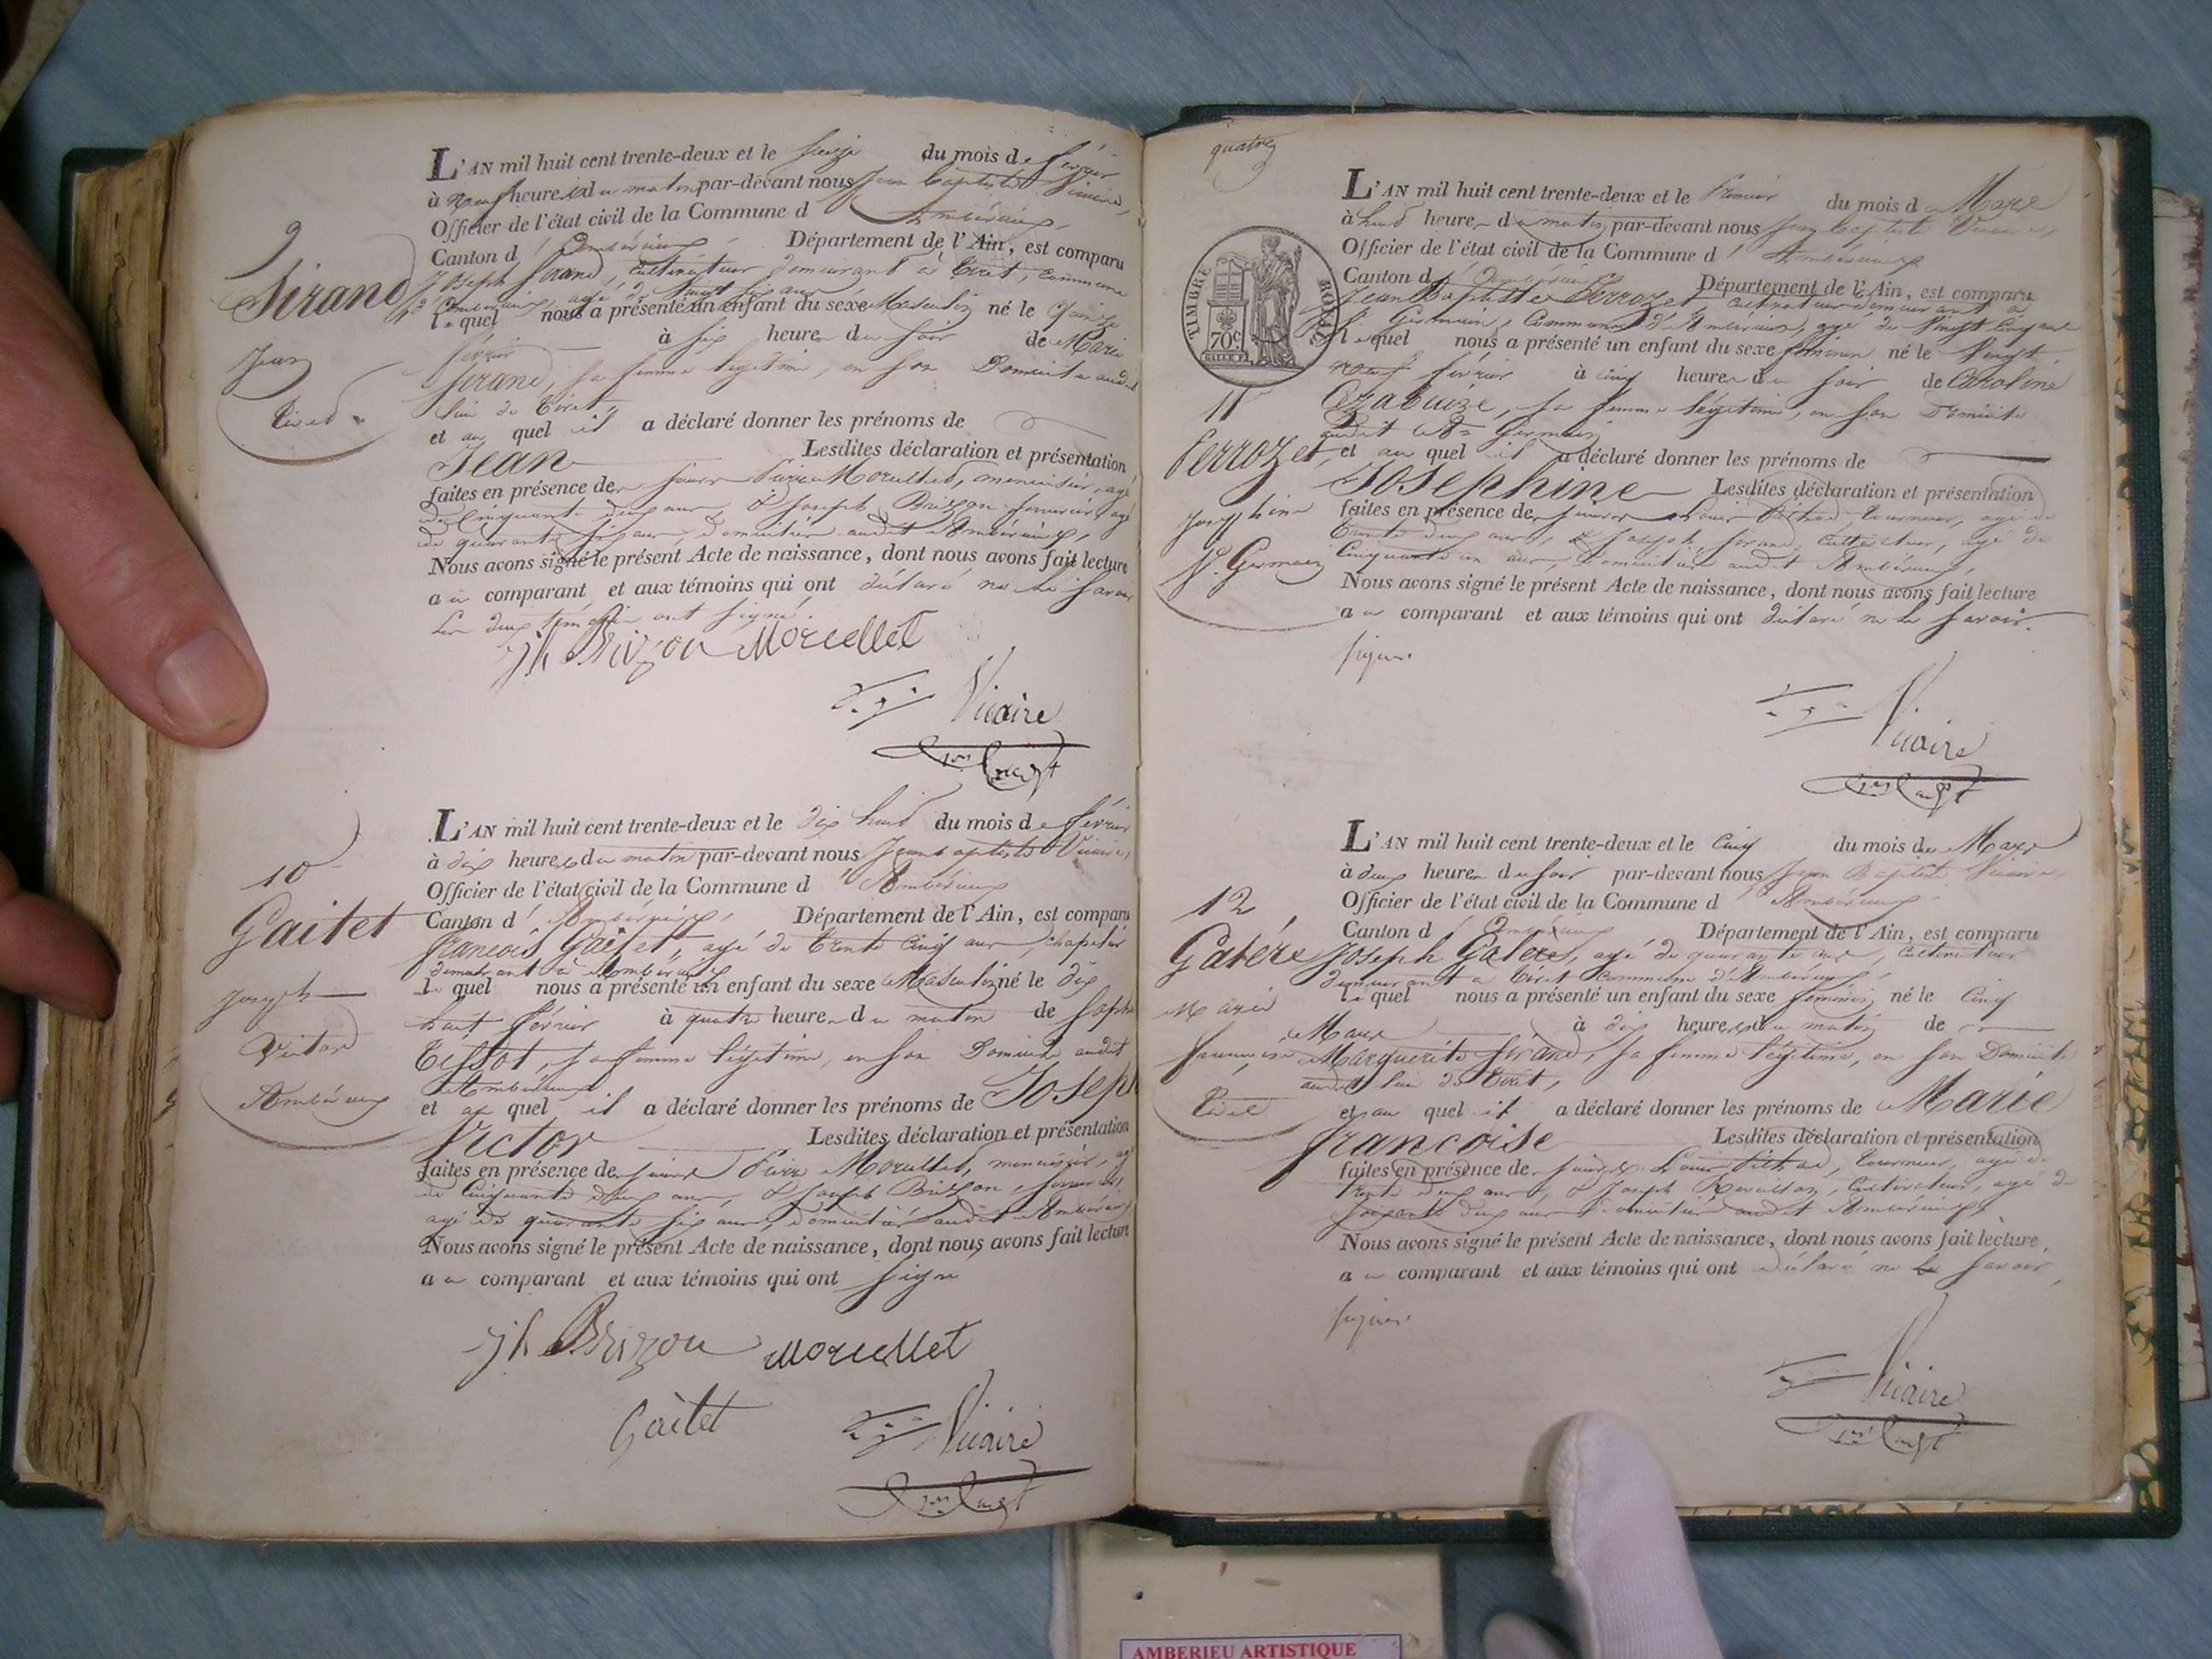 9
Sirand
Jean
Tiret
L'AN mil huit cent trente-deux et le seize du mois de février
à neuf heures du matin par-devant nous Jean Baptiste Vicaire,
Officier de l'état civil de la Commune d Ambérieux
Canton d' Ambérieux Département de l'Ain, est comparu
Joseph Sirand, cultivateur demeurant à Tiret, commune
d'Ambérieux, agé de ans
lequel nous a présenté un enfant du sexe Masculin né le quinze
février à six heures du soir de Marie
Sirand, sa femme légitime, en son Domicile audit
lieu de Tiret,
et auquel il a déclaré donner les prénoms de
Jean Lesdites déclaration et présentation
faites en présence de sieurs Pierre Morellet, menuisier, agé
de Cinquante deux ans, & Joseph Brizon serrurier, agé
de quarante six ans, domiciliés audit Ambérieux,
Nous avons signé le présent Acte de naissance, dont nous avons fait lecture
au comparant et aux témoins qui ont déclaré ne le savoir
Les deux témoins ont signé.
jh Brizon Morellet
Vicaire
10
Gaitet
Joseph
Victor
Ambérieux
L'AN mil huit cent trente-deux et le dix huit du mois de février
à dix heures du matin par-devant nous Jean Baptiste Vicaire,
Officier de l'état civil de la Commune d' Ambérieux
Canton d' Ambérieux, Département de l'Ain, est comparu
francois Gaitet, agé de trente cinq ans, chapelier
demeurant à Ambérieux
lequel nous a présenté un enfant du sexe Masculin né le dix
huit février à quatre heures du matin de Sophie
Tissot, sa femme légitime, en son Domicile audit
Ambérieux
et auquel il a déclaré donner les prénoms de Joseph
Victor Lesdites déclaration et présentation
faites en présence de sieurs Pierre Morellet, menuisier, agé
de Cinquante deux ans, & Joseph Brizon, serrurier,
agé de quarante six ans, domiciliés audit Ambérieux
Nous avons signé le présent Acte de naissance, dont nous avons fait lecture
au comparant et aux témoins qui ont signé
jh Brizon Morellet
Gaitet Vicaire
quatre
TIMBRE ROYAL
70c
11
Perrozet
Josephine
St. Germain
L'AN mil huit cent trente-deux et le Premier du mois de Mars
à huit heures du matin par-devant nous Jean Baptiste Vicaire,
Officier de l'état civil de la Commune d' Ambérieux
Canton d' Ambérieux Département de l'Ain, est comparu
Jean Baptiste Perrozet, cultivateur demeurant à
St. Germain, Commune d'Ambérieux, agé de Vingt Cinq ans
lequel nous a présenté un enfant du sexe féminin né le Vingt
neuf février à cinq heures du soir de Caroline
sa femme légitime, en son Domicile
audit St. Germain
et auquel il a déclaré donner les prénoms de
Josephine Lesdites déclaration et présentation
faites en présence de sieurs Louis tourneur, agé de
trente deux ans, & Joseph Sirand, Cultivateur, agé de
Cinquante un ans, Domiciliés audit Ambérieux,
Nous avons signé le présent Acte de naissance, dont nous avons fait lecture
au comparant et aux témoins qui ont déclaré ne le savoir.
signer.
Vicaire
12
Galére
Marie
françoise
Tiret
L'AN mil huit cent trente-deux et le cinq du mois de Mars
à deux heures du soir par-devant nous Jean Baptiste Vicaire,
Officier de l'état civil de la Commune d' Ambérieux
Canton d' Ambérieux Département de l'Ain, est comparu
Joseph Galére, agé de quarante ans, cultivateur
demeurant à Tiret commune d'Ambérieux,
lequel nous a présenté un enfant du sexe féminin né le cinq
Mars à dix heures du matin de
Marguerite Sirand, sa femme légitime, en son Domicile
audit lieu de Tiret,
et auquel il a déclaré donner les prénoms de Marie
francoise Lesdites déclaration et présentation
faites en présence de sieurs Louis tourneur, agé de
trente deux ans, & Joseph Cultivateur, agé de
soixante deux ans Domiciliés audit Ambérieux,
Nous avons signé le présent Acte de naissance, dont nous avons fait lecture
au comparant et aux témoins qui ont déclaré ne le savoir
signer.
Vicaire
AMBERIEU ARTISTIQUE